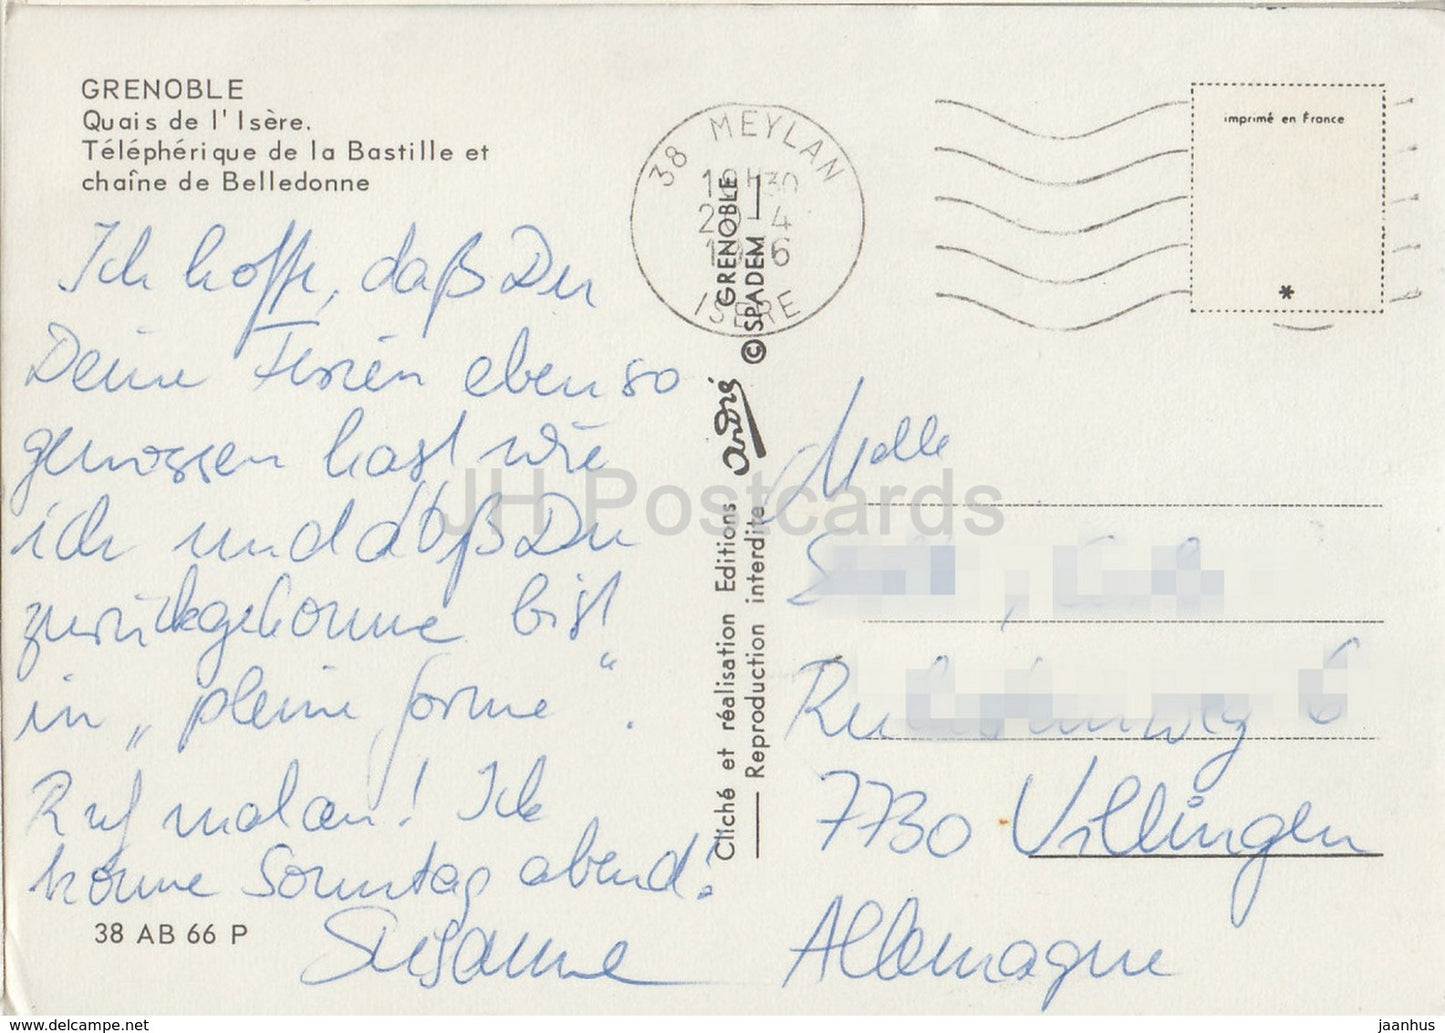 GRENOBLE
Quais de l'Isère.
Téléphérique de la Bastille et
chaîne de Belledonne
Ich hoffe, daß Du
Deine Ferien ebenso
genossen hast wie
ich und daß Du
zurückgekomme bist
in „pleine forme".
Ruf mal an! Ich
komme Sonntag abend!
Susanne
38 AB 66 P
38 MEYLAN
ISERE
GRENOBLE
© SPADEM
Cliché et réalisation Editions andré
Reproduction interdite
imprimé en France
*
Melle
6
7730 Villingen
Allemagne
JH Postcards
jaanhus @ delcampe.net